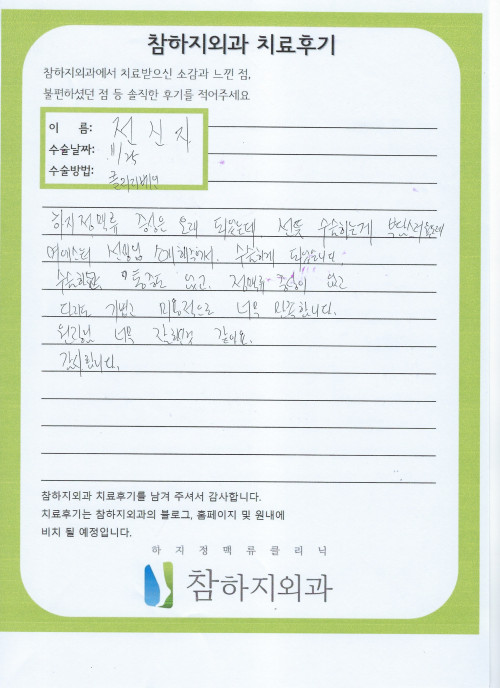 참하지외과 치료후기
참하지외과에서 치료받으신 소감과 느낀 점,
불편하셨던 점 등 솔직한 후기를 적어주세요
이 름: 전신자
수술날짜: 11/25
수술방법: 클라리베인
하지정맥류 증상은 오래 되었는데, 선뜻 수술하는게 부담스러웠는데
선생님 수술하게 되었습니다.
통증도 없고. 정맥류 증상이 없고
다리도 가볍고 미용적으로 너무 만족합니다.
원장님 너무 같아요.
감사합니다.
참하지외과 치료후기를 남겨 주셔서 감사합니다.
치료후기는 참하지외과의 블로그, 홈페이지 및 원내에
비치 될 예정입니다.
하지정맥류클리닉
참하지외과